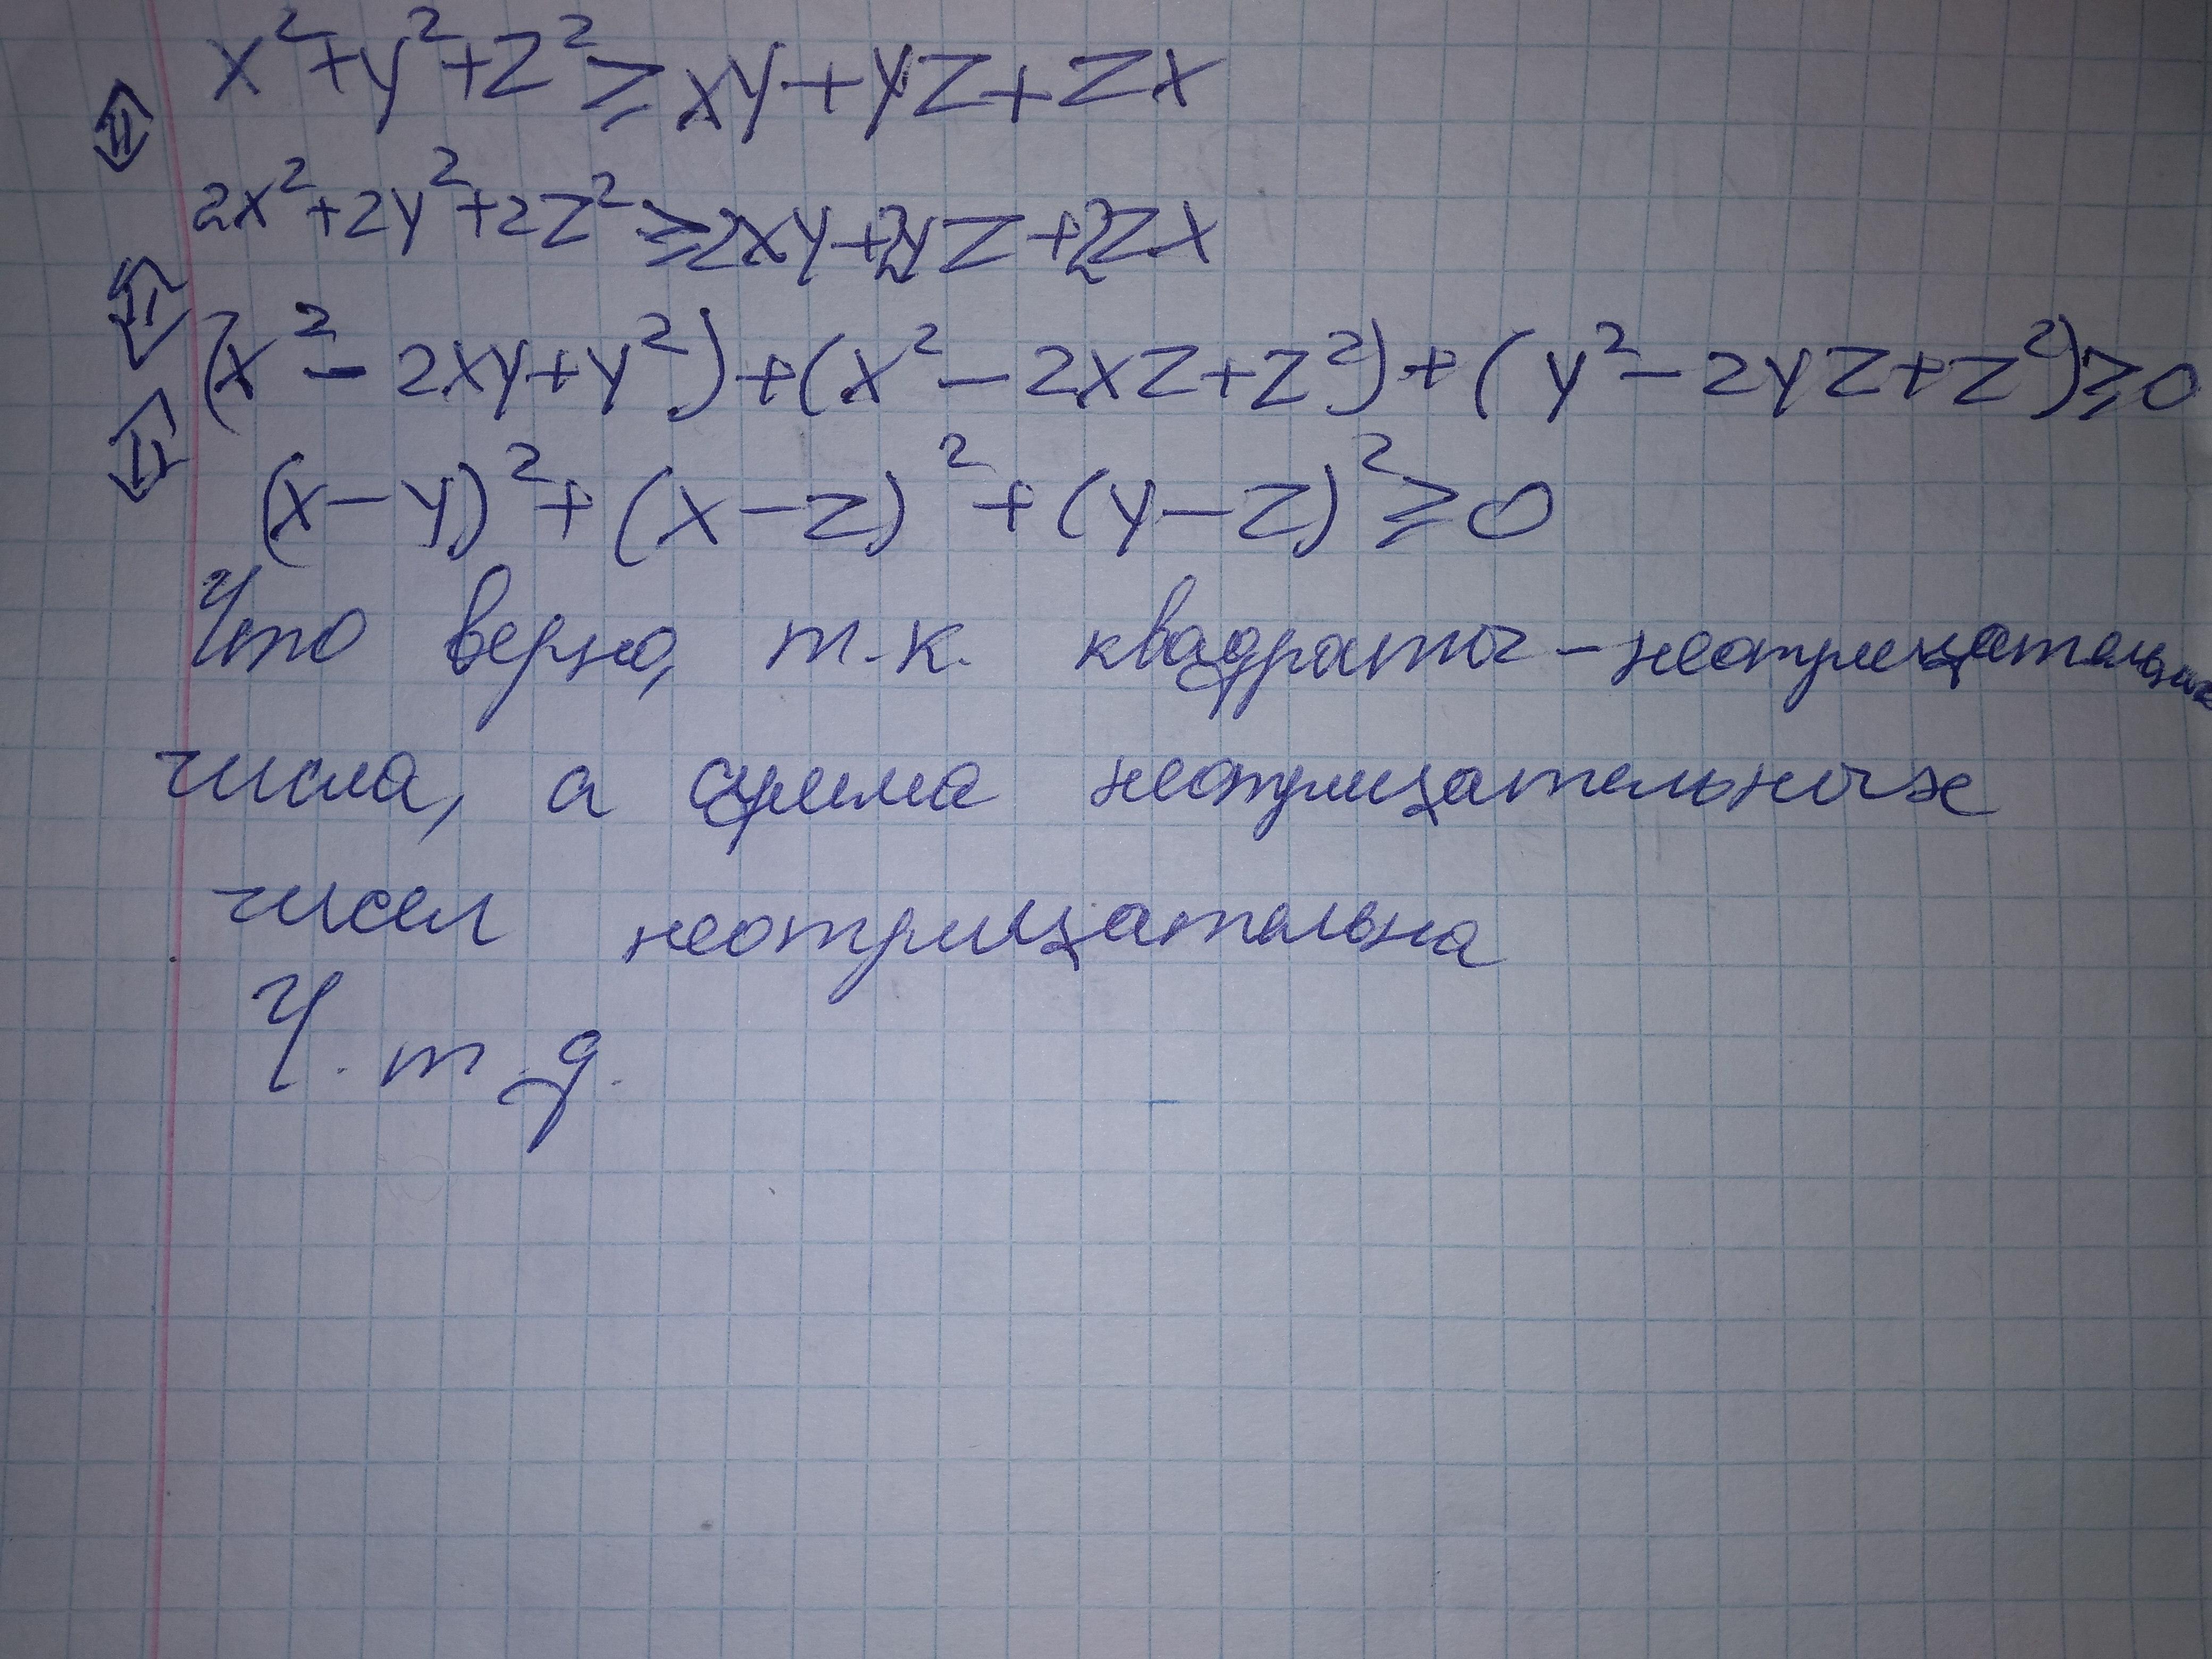 x²+y²+z²≥xy+yz+zx
⇕
2x²+2y²+2z²≥2xy+2yz+2zx
⇕
(x²-2xy+y²)+(x²-2xz+z²)+(y²-2yz+z²)≥0
⇕
(x-y)²+(x-z)²+(y-z)²≥0
Что верно, т.к. квадраты - неотрицательные
числа, а сумма неотрицательных
чисел неотрицательна
Ч.т.д.